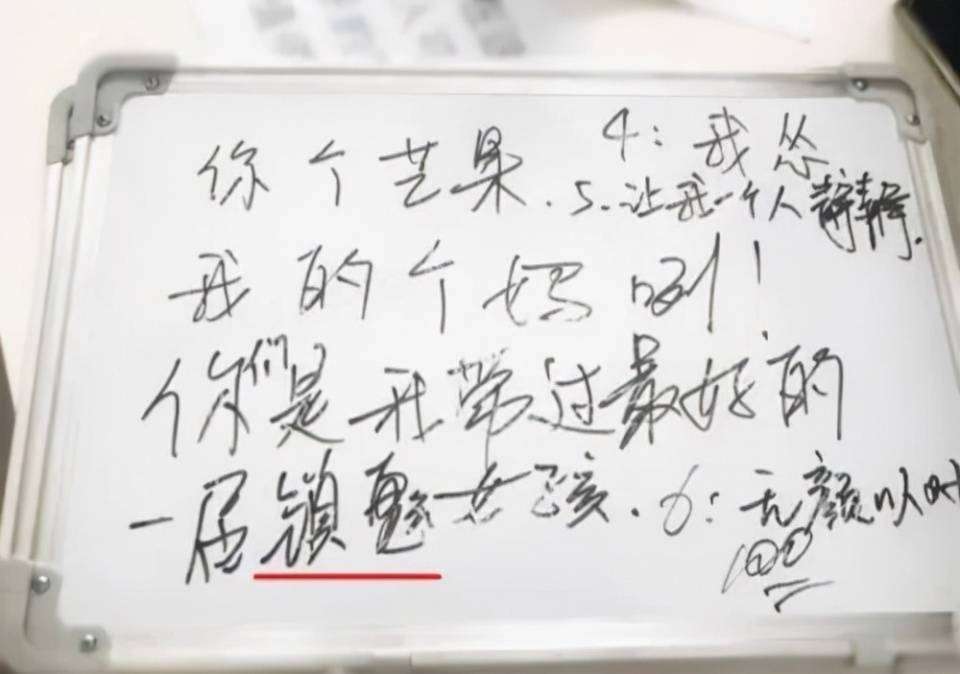 你个艺果.
4: 我怂
5、让我一个人静静.
我的个妈咧!
你们是我带过最好的
一届镇魂女孩.
6: 无颜以
100